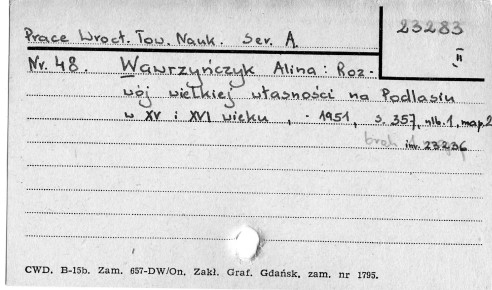 23283
II
Prace Wrocł. Tow. Nauk. Ser. A.
Nr. 48. Wawrzyńczyk Alina: Roz-
wój wielkiej własności na Podlasiu
w XV i XVI wieku, - 1951, s. 357, nlb. 1, map. 2
brak inw. 23236
CWD. B-15b. Zam. 657-DW/On. Zakł. Graf. Gdańsk, zam. nr 1795.